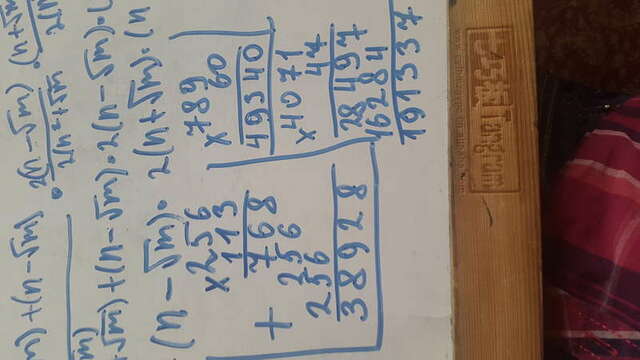 m)+(n-√m) · 2(n-√m) · (n+√m)
2(n²+√m 2(n
√m)+(n-√m)·2(n-√m)·(
(n-√m)·2(n+√m)·(n
×256
113
768
+ 256
256
38928
×789
60
49340
×4071
47
28497
16284
191337
Tangram